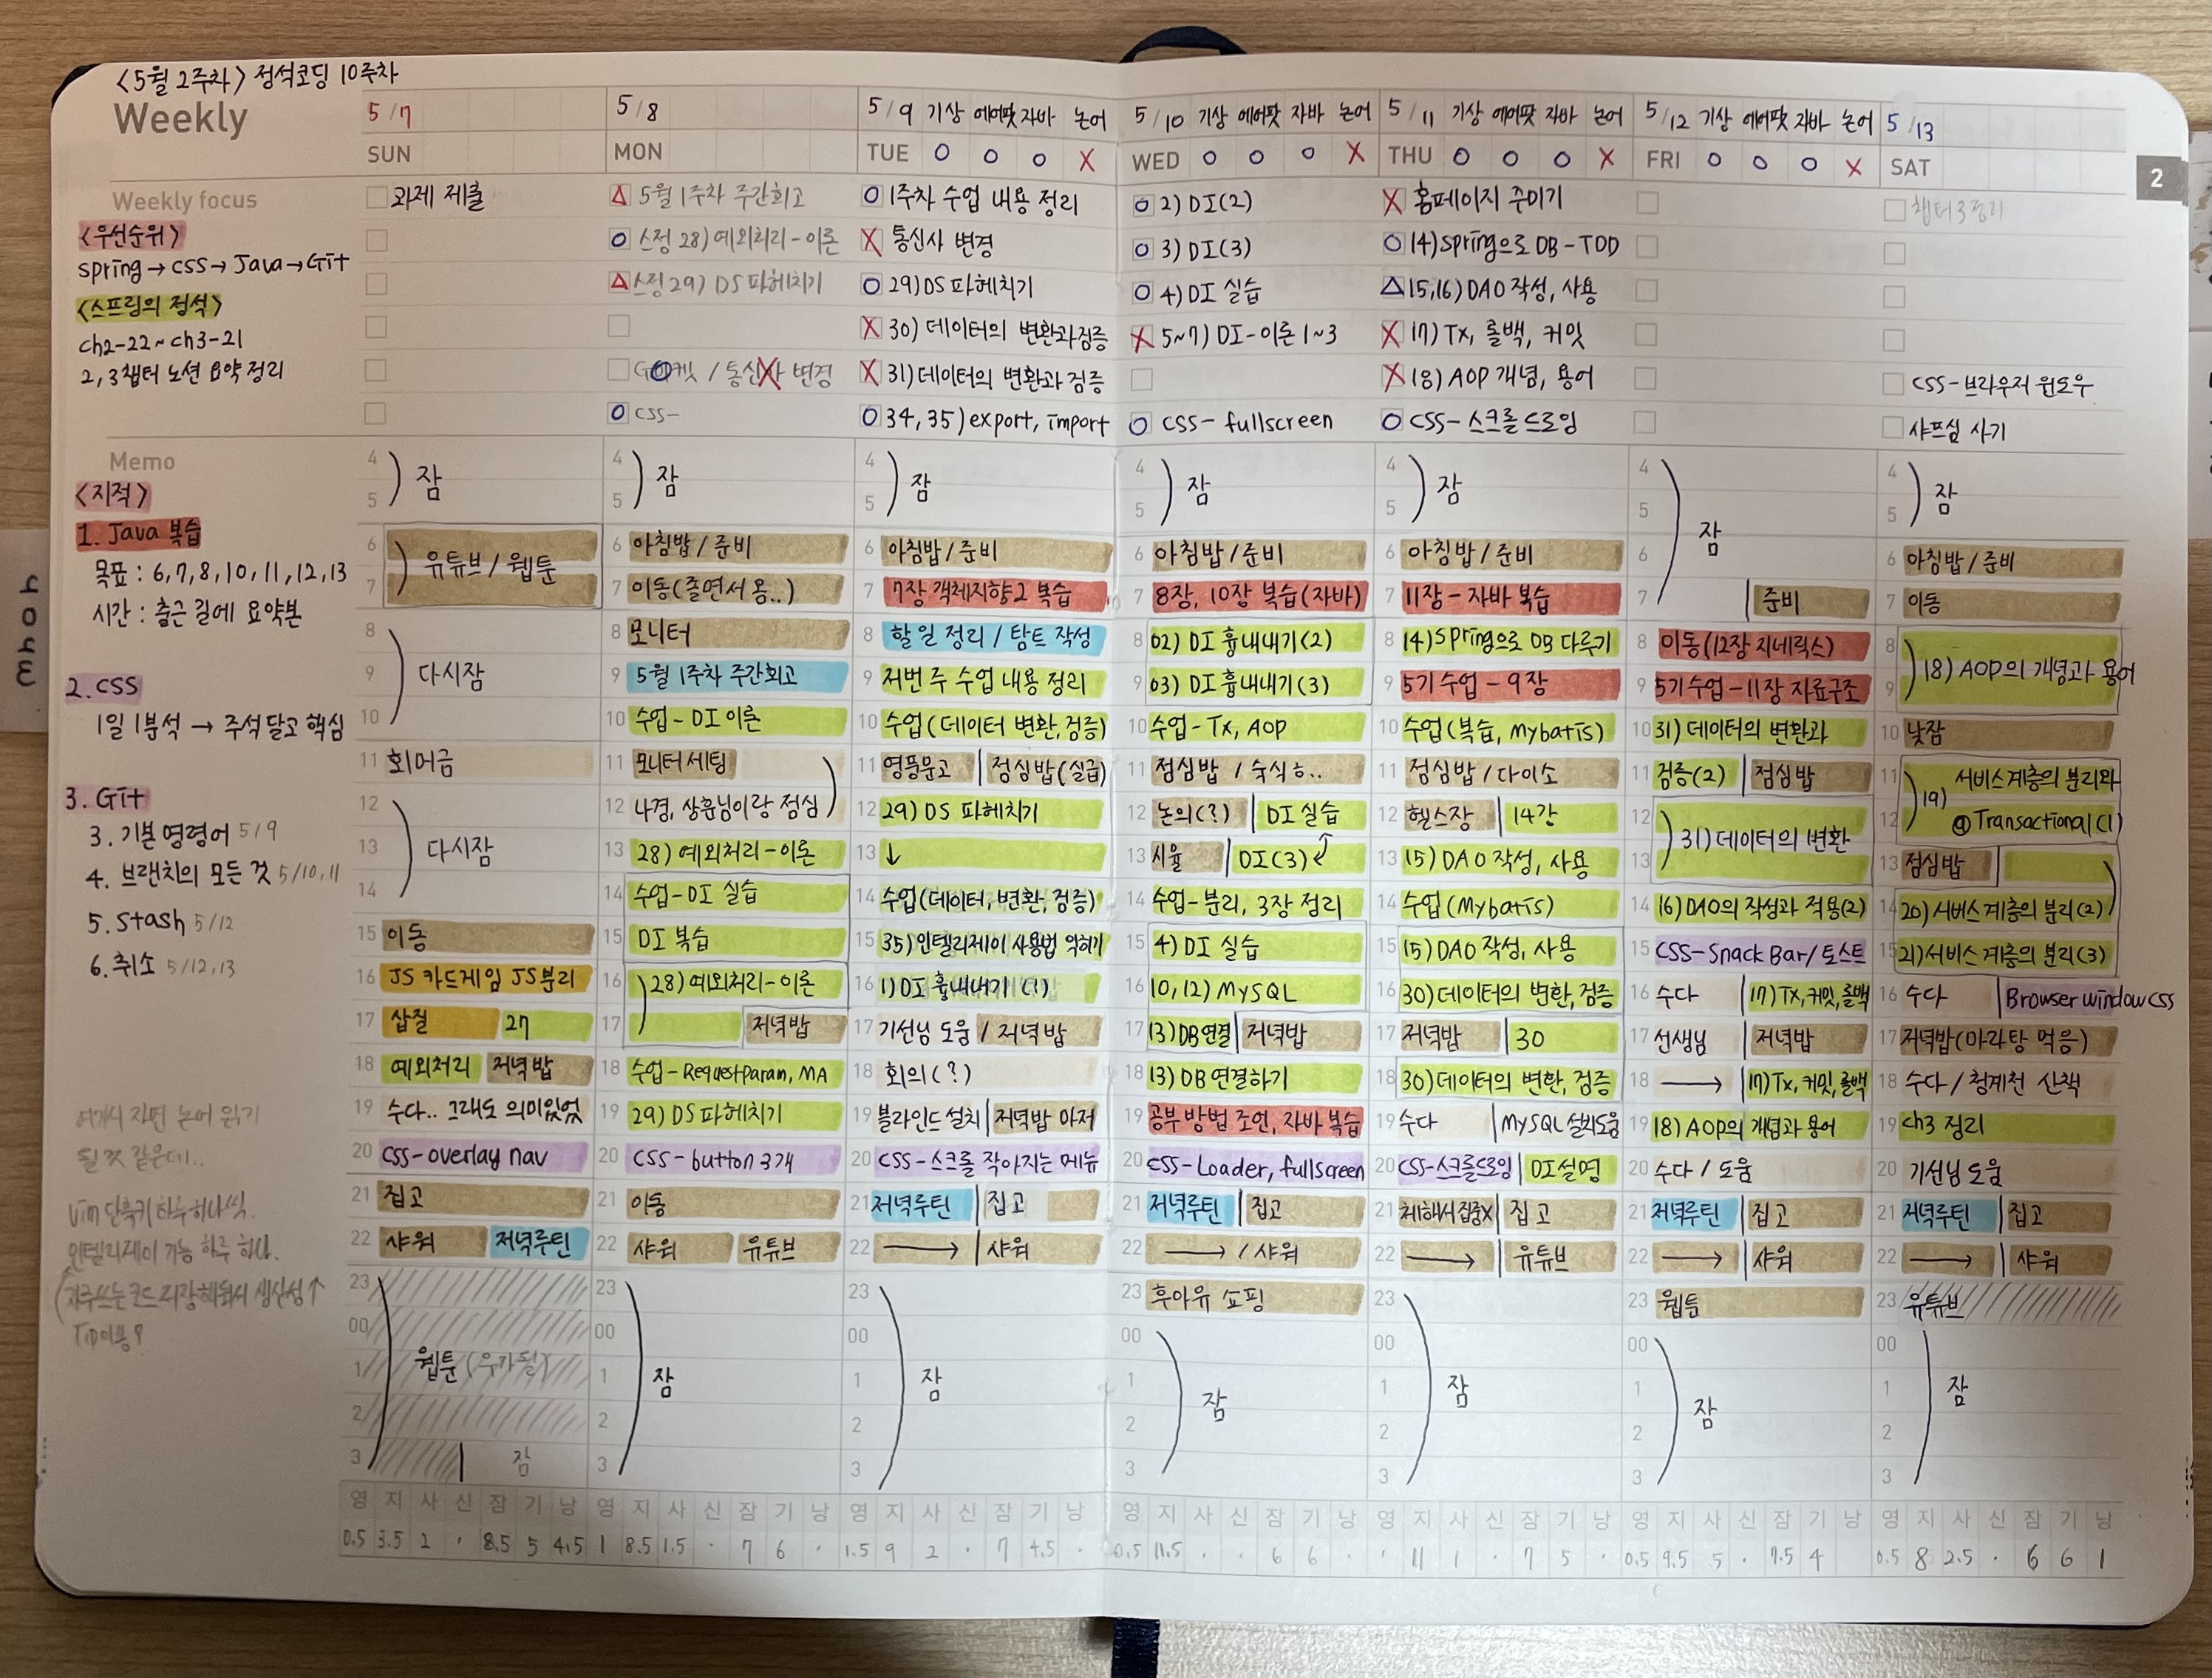 <5월 2주차> 정석코딩 10주차
Weekly
Weekly focus
<우선순위>
Spring → CSS → Java → Git
<스프링의 정석>
ch2-22 ~ ch3-21
2, 3챕터 노션 요약정리
Memo
<지적>
1. Java 복습
목표 : 6, 7, 8, 10, 11, 12, 13
시간 : 출근 길에 요약본
2. CSS
1일 1분석 → 주석 달고 핵심
3. Git
3. 기본 명령어 5/9
4. 브랜치의 모든 것 5/10, 11
5. stash 5/12
6. 취소 5/12, 13
여기서 자면 논어 읽기
될 것 같은데..
Vim 단축키 하루 하나씩.
인텔리제이 기능 하루 하나.
5/7
SUN
과제 제출
4
5
잠
6
7
유튜브 / 웹툰
8
9
10
다시잠
11 회머금
12
13
14
다시잠
15 이동
16 JS 카드게임 JS분리
17 삽질 27
18 예외처리 저녁밥
19 수다.. 그래도 의미있었
20 CSS-overlay nav
21 집고
22 샤워 저녁루틴
23
00
1
2
웹툰
3 잠
영 지 사 신 잠 기 낭
0.5 3.5 2 · 8.5 5 4.5
5/8
MON
△ 5월 1주차 주간회고
O 스정 28) 예외처리-이론
△ 스정 29) DS 파헤치기
/ 통신사 변경
O CSS-
4
5
잠
6 아침밥 / 준비
7 이동(졸면서 용..)
8 모니터
9 5월 1주차 주간회고
10 수업-DI 이론
11 모니터 세팅
12 나경, 상훈님이랑 점심
13 28) 예외처리-이론
14 수업-DI 실습
15 DI 복습
16 28) 예외처리-이론
17 저녁밥
18 수업-RequestParam, MA
19 29) DS 파헤치기
20 CSS-button 3개
21 이동
22 샤워 유튜브
23
00
1
2
3
잠
영 지 사 신 잠 기 낭
1 8.5 1.5 · 7 6 ·
5/9 기상 에어팟 자바 논어
TUE O O O X
O 1주차 수업 내용 정리
X 통신사 변경
O 29) DS 파헤치기
X 30) 데이터의 변환과 검증
X 31) 데이터의 변환과 검증
O 34, 35) export, import
4
5
잠
6 아침밥/준비
7 7장 객체지향2 복습
8 할 일 정리 / 탐트 작성
9 저번 주 수업 내용 정리
10 수업(데이터 변환, 검증)
11 영풍문고 | 점심밥(실급)
12 29) DS 파헤치기
13 ↓
14 수업(데이터, 변환, 검증)
15 35) 인텔리제이 사용법 익히기
16 1) DI 흉내내기 (1)
17 기선님 도움 / 저녁밥
18 회의(?)
19 블라인드 설치 | 저녁밥 마저
20 CSS-스크롤 작아지는 메뉴
21 저녁루틴 | 집고
22 → | 샤워
23
00
1
2
3
잠
영 지 사 신 잠 기 낭
1.5 9 2 · 7 4.5 ·
5/10 기상 에어팟 자바 논어
WED O O O X
O 2) DI(2)
O 3) DI(3)
O 4) DI 실습
X 5~7) DI-이론 1~3
O CSS- fullscreen
4
5
잠
6 아침밥/준비
7 8장, 10장 복습(자바)
8 02) DI 흉내내기(2)
9 03) DI 흉내내기(3)
10 수업-Tx, AOP
11 점심밥 / 숙식ㅎ..
12 논의(?) | DI 실습
13 시율 | DI(3)
14 수업-분리, 3장 정리
15 4) DI 실습
16 10, 12) MySQL
17 13) DB연결 | 저녁밥
18 13) DB 연결하기
19 공부 방법 조언, 자바 복습
20 CSS-Loader, fullscreen
21 저녁루틴 | 집고
22 → / 샤워
23 후아유 쇼핑
00
1
2
3
잠
영 지 사 신 잠 기 낭
0.5 11.5 · · 6 6 ·
5/11 기상 에어팟 자바 논어
THU O O O X
X 홈페이지 주미기
O 14) Spring으로 DB-TDD
△ 15, 16) DAO 작성, 사용
X 17) Tx, 롤백, 커밋
X 18) AOP 개념, 용어
O CSS-스크롤 드로잉
4
5
잠
6 아침밥/준비
7 11장-자바 복습
8 14) Spring으로 DB 다루기
9 5기 수업-9장
10 수업(복습, Mybatis)
11 점심밥/다이소
12 헬스장 | 14강
13 15) DAO 작성, 사용
14 수업(Mybatis)
15 15) DAO 작성, 사용
16 30) 데이터의 변환, 검증
17 저녁밥 | 30
18 30) 데이터의 변환, 검증
19 수다 | MySQL 설치도움
20 CSS-스크롤드로잉 | DI설명
21 체해서 집중X | 집고
22 → | 유튜브
23
00
1
2
3
잠
영 지 사 신 잠 기 낭
· 11 1 · 7 5 ·
5/12 기상 에어팟 자바 논어
FRI O O O X
4
5
6
7
잠
준비
8 이동(12장 지네릭스)
9 5기 수업-11장 자료구조
10 31) 데이터의 변환과
11 검증(2) | 점심밥
12
13
31) 데이터의 변환
14 16) DAO의 작성과 적용(2)
15 CSS-Snack Bar/토스트
16 수다 | 17) Tx, 커밋, 롤백
17 선생님 | 저녁밥
18 → | 17) Tx, 커밋, 롤백
19 18) AOP의 개념과 용어
20 수다 / 도움
21 저녁루틴 | 집고
22 → | 샤워
23 웹툰
00
1
2
3
잠
영 지 사 신 잠 기 낭
0.5 9.5 .5 · 7.5 4
5/13
SAT
챕터 3 정리
CSS-브라우저 윈도우
샤프심 사기
2
4
5
잠
6 아침밥/준비
7 이동
8
9
18) AOP의 개념과 용어
10 낮잠
11
12
19) 서비스 계층의 분리와
@Transactional(1)
13 점심밥
14 20) 서비스 계층의 분리(2)
15 21) 서비스 계층의 분리(3)
16 수다 | Browser window CSS
17 저녁밥(마라탕 먹음)
18 수다 / 청계천 산책
19 ch3 정리
20 기선님 도움
21 저녁루틴 | 집고
22 → | 샤워
23 유튜브
00
1
2
3
잠
영 지 사 신 잠 기 낭
0.5 8 2.5 · 6 6 1